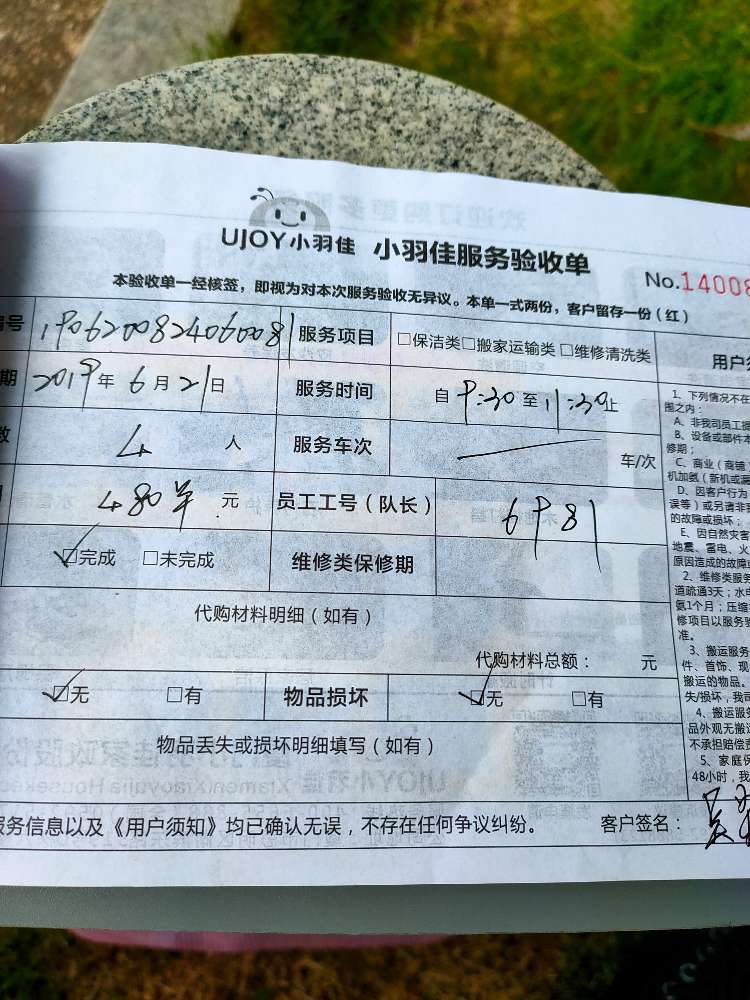 UJOY小羽佳 小羽佳服务验收单
No.14008
本验收单一经核签，即视为对本次服务验收无异议。本单一式两份，客户留存一份（红）
号 1906200824060081 服务项目 □保洁类□搬家运输类□维修清洗类
期 2019年6月21日 服务时间 自9:30至11:30止
数 4人 服务车次 车/次
480 元 员工工号（队长） 6981
☑完成 □未完成 维修类保修期
代购材料明细（如有）
代购材料总额： 元
☑无 □有 物品损坏 ☑无 □有
物品丢失或损坏明细填写（如有）
服务信息以及《用户须知》均已确认无误，不存在任何争议纠纷。 客户签名：
用户须
1、下列情况不在
围之内：
A、非我司员工提
B、设备或部件本
修期；
C、商业（商铺
机加氨（新机或漏
D、因客户行为
误等）或另请非我
的故障或损坏；
E、因自然灾害
地震、雷电、火
原因造成的故障或
2、维修类服务
道疏通3天；水电
氨1个月；压缩
修项目以服务验
准。
3、搬运服务
件、首饰、现
搬运的物品。
失/损坏，我司
4、搬运服务
品外观无搬运
不承担赔偿责
5、家庭保
48小时，我